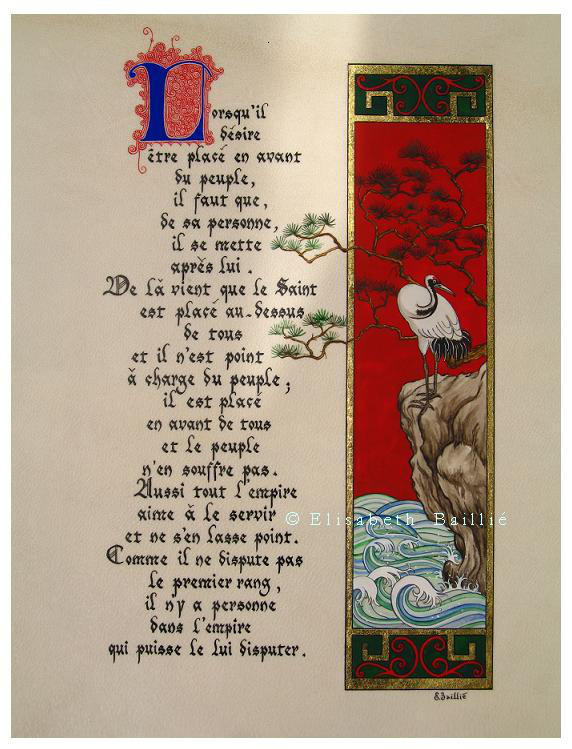 Lorsqu'il
désire
être placé en avant
du peuple,
il faut que,
de sa personne,
il se mette
après lui.
De là vient que le Saint
est placé au-dessus
de tous
et il n'est point
à charge du peuple;
il est placé
en avant de tous
et le peuple
n'en souffre pas.
Aussi tout l'empire
aime à le servir
et ne s'en lasse point.
Comme il ne dispute pas
le premier rang,
il n'y a personne
dans l'empire
qui puisse le lui disputer.
© Elisabeth Baillié
E. Baillié